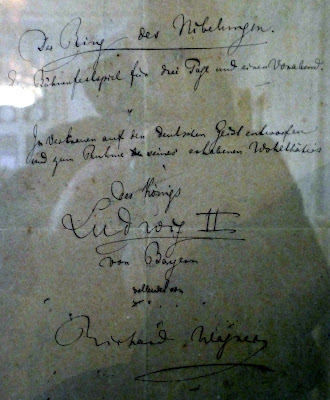 Der Ring des Nibelungen.
Ein Bühnenfestspiel für drei Tage und einen Vorabend.
Im Vertrauen auf den deutschen Geist entworfen
und zum Ruhme seines erhabenen Wohlthäters
Des Königs
Ludwig II
von Bayern
vollendet von
Richard Wagner